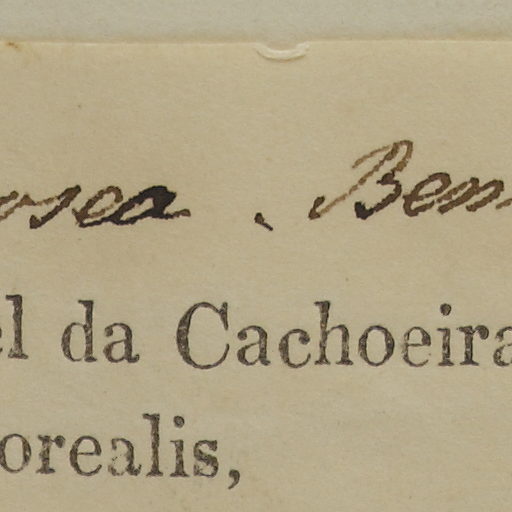 osea . Ben
el da Cachoeira
orealis,